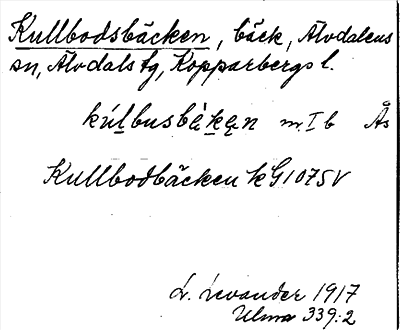 Kullbodsbäcken, bäck, Älvdalens
sn, Älvdals tg, Kopparbergs l.
kúlbusbèkęn m. I b Ås
Kullbodbäcken kG1075V
L. Levander 1917
Ulma 339:2